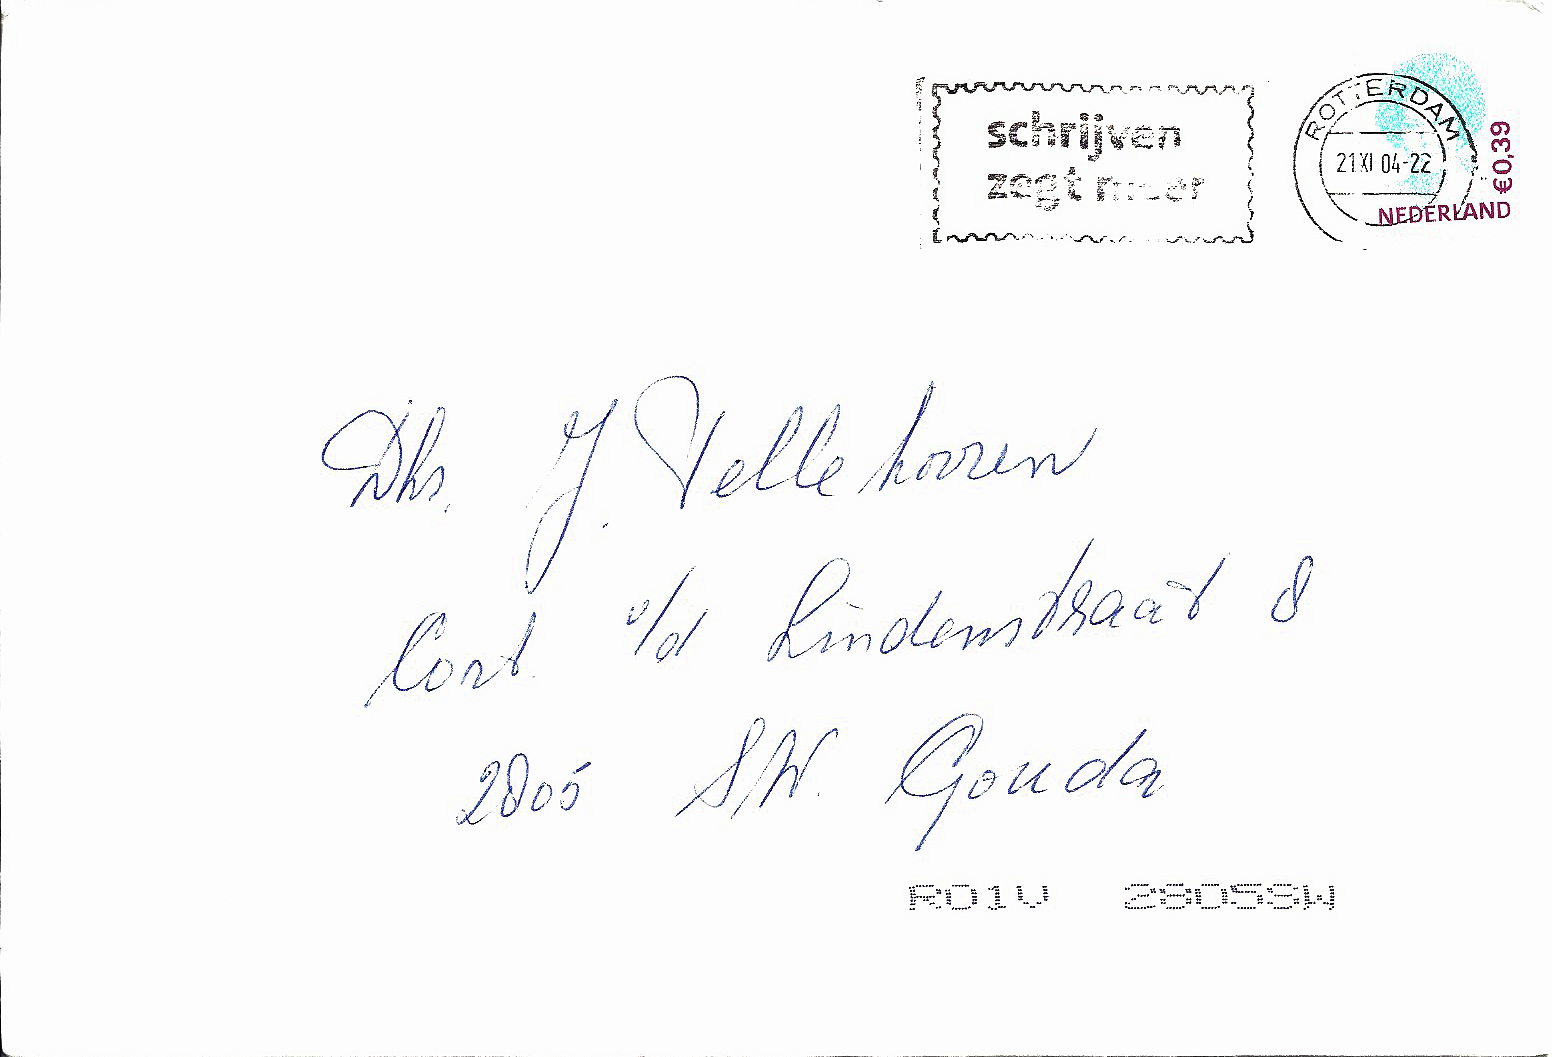 schrijven
zegt meer
ROTTERDAM
21 XI 04-22
€0,39
NEDERLAND
Dhs. J. Vellekoozen
Cort. v/d Lindenstraat 8
2805 SW. Gouda
R01V 2805SW